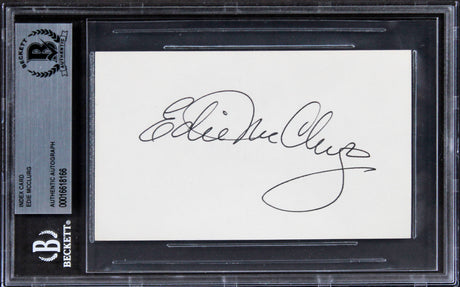 BECKETT
B
AUTHENTIC
INDEX CARD
EDIE MCCLURG
AUTHENTIC AUTOGRAPH
00016618166
B
BECKETT®
Edie McClurg